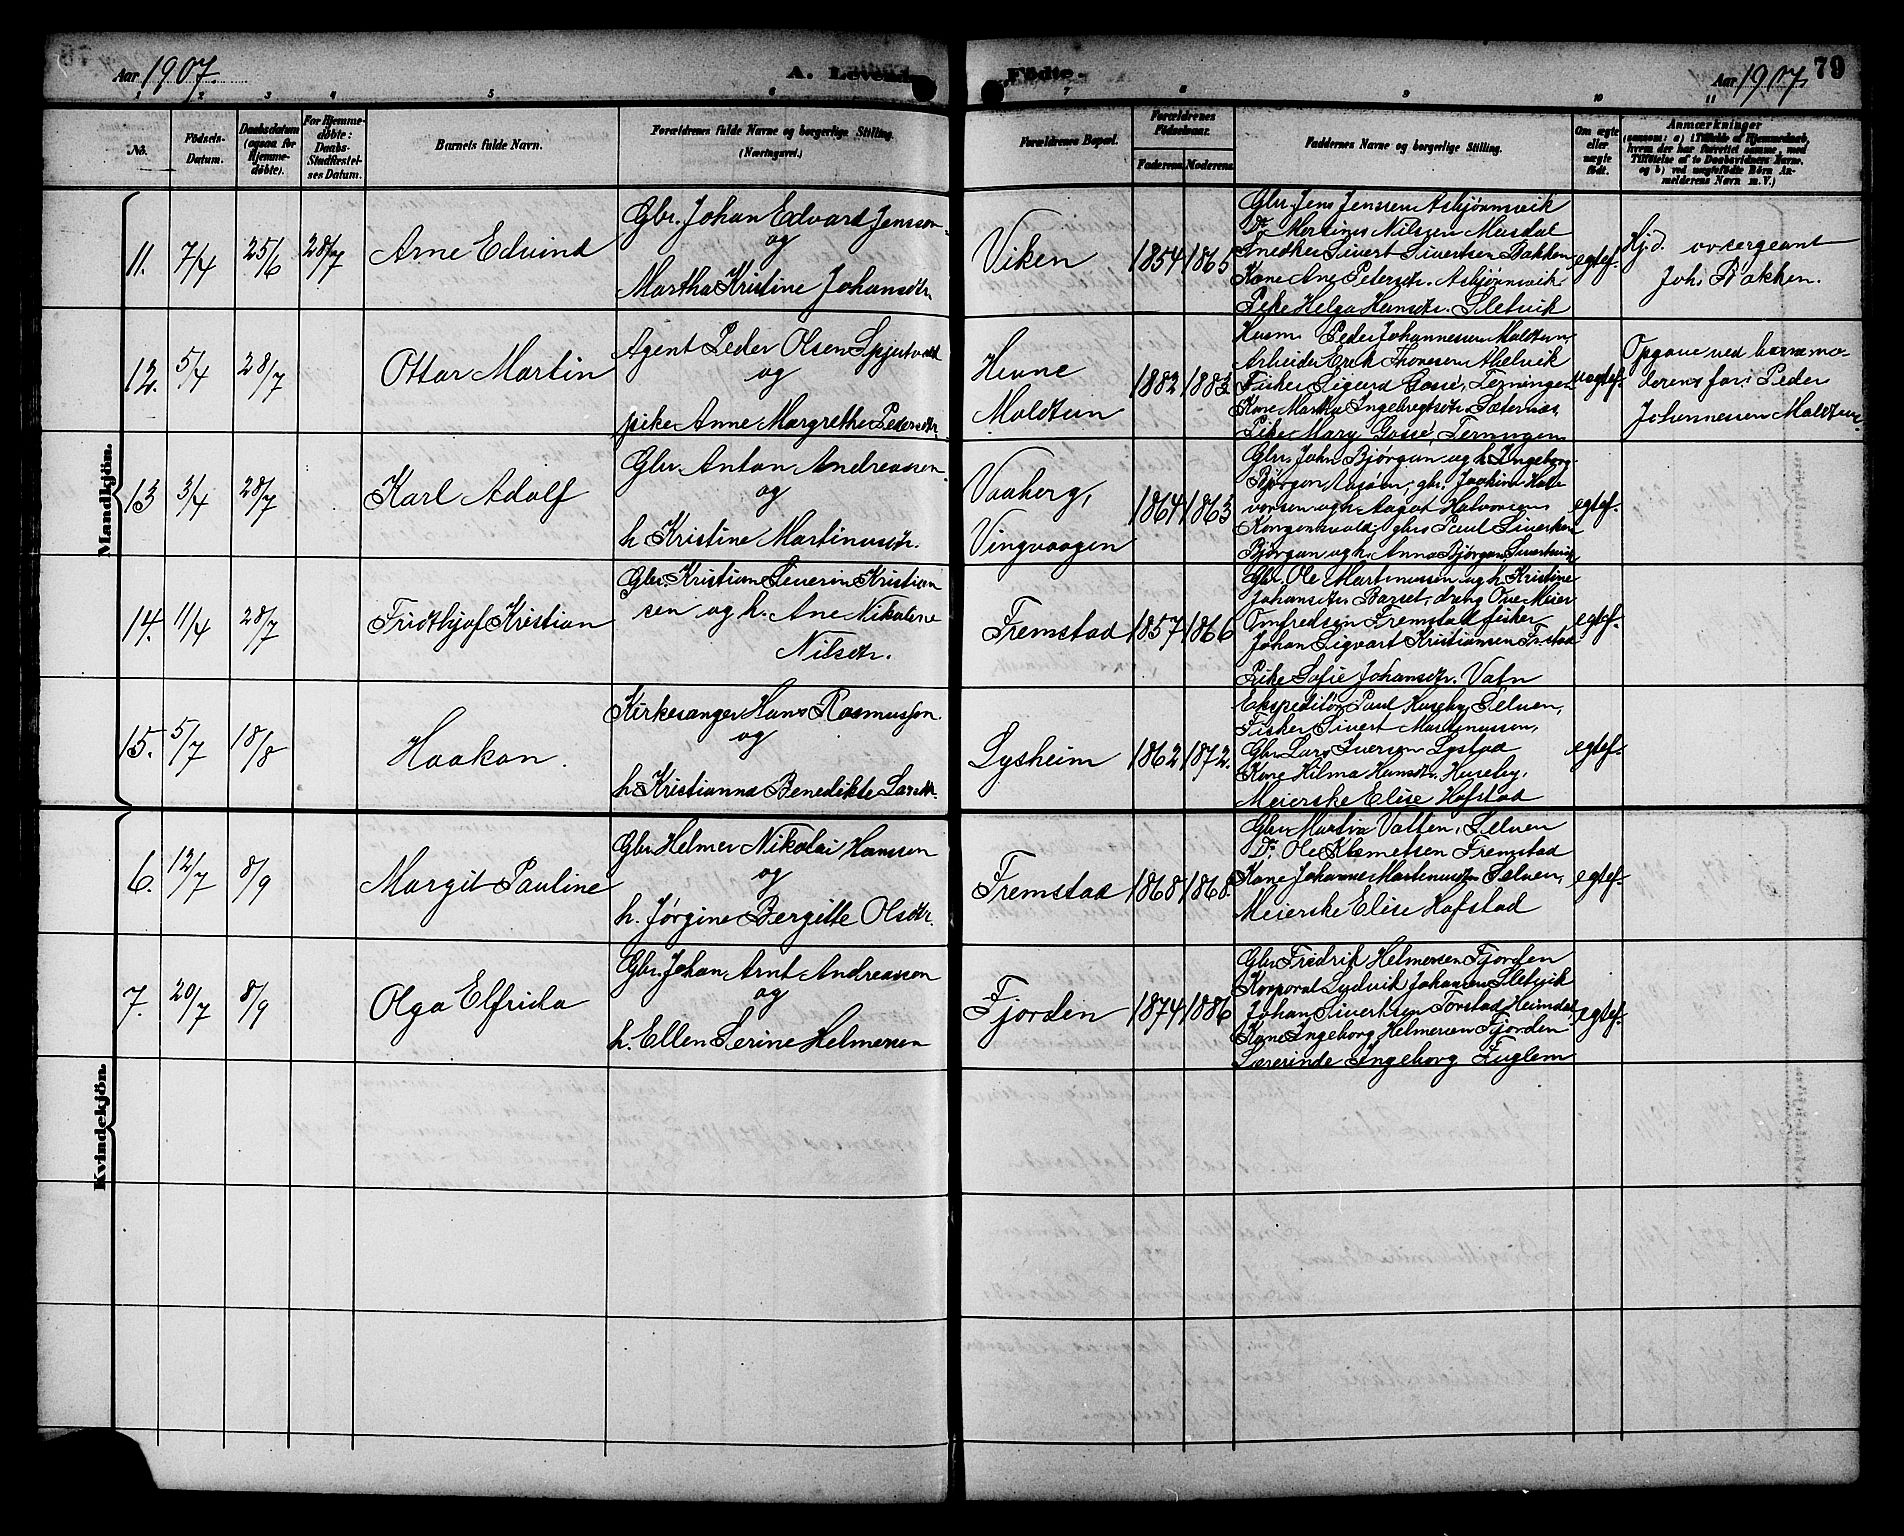 Aar 1907.
A. Levende
Födte.
Aar 1907.
79
1 2 3 4 5 6 7 8 9 10 11
No.
Födsels-
Datum.
Daabsdatum
(ogsaa for
Hjemme-
døbte).
For Hjemme-
døbte:
Daabs-
Stadfæstel-
ses Datum.
Barnets fulde Navn.
Forældrenes fulde Navne og borgerlige Stilling.
(Næringsvei.)
Forældrenes Bopæl.
Forældrenes
Fødselsaar.
Faderens
Moderens
Faddernes Navne og borgerlige Stilling.
Om ægte
eller
uægte
født.
Anmærkninger
(saasom: a) i Tilfælde af Hjemmedaab,
hvem der har forrettet samme, med
Tilføielse af to Daabsvidners Navne,
og b) ved uægtefødte Börn An-
melderens Navn m. V.)
Mandkjön.
11.
7/4
25/6
28/7
Arne Edvind
Gbr. Johan Edvard Jensson
og
Martha Kristine Johansdtr.
Viken
1854
1865
Gbr. Jens Jenssen Asbjørnsvik
Do Martines Nilsen Musdal
Snedker Sivert Sivertsen Bakken
Kone Ane Petersdtr. Asbjørnsvik
Pike Helga Hansdtr. Sletvik
egtef.
Hjd. ov. sergeant
Joh. Bakken.
12.
5/4
28/7
Ottar Martin
Agent Peder Olsen
og
pike Anne Margrethe Pedersdtr.
Hevne
Moldtun
1882
1883
Husm. Peder Johannessen Moldtun
Arbeider Erik Thoresen Abelvik
Fisker Sigurd Terningen
Kone Martha Ingebregtsdtr. Sæternes,
Pike Mary Terningen
uegtef.
Opgave ved barnemo-
derens far: Peder
Johannessen Moldtun
13
3/4
28/7
Karl Adolf
Gbr. Anton Andreassen
og
h. Kristine Martinusdtr.
Vaaberg,
Vingvaagen
1864
1863
Gbr. John Bjørgan og h. Ingeborg
Bjørgan gbr. Joakim Hal-
vorsen og h. Aagot Halvorsen
Kongensvold, gbr. Paul Sivertsen
Bjørgan og h. Anna Bjørgan
egtef.
14.
11/4
28/7
Fridthjof Kristian
Gbr. Kristian Severin Kristian
sen og h. Ane Nikoline
Nilsdtr.
Fremstad
1857
1866
Gbr. Ole Martinussen og h. Kristine
Johansdtr. Barset, dreng Ove Meier
Omfredsen Fremstad fisker
Johan Sigvart Kristiansen
Pike Sofie Johansdtr. Vatn
egtef.
15.
5/7
18/8
Haakon.
Kirkesanger Hans Rasmussen
og
h. Kristianna Benedikte Larsdtr.
Lysheim
1862
1872.
Ekspeditør Paul Huseby, Selven,
Fisker Sivert Martinussen,
Gbr. Lars Iversen Lystad
Kone Hilma Hansdtr. Huseby,
Meierske Elise Hofstad
egtef.
Kvindekjön.
6.
12/7
8/9
Margit Pauline
Gbr. Helmer Nikolai Hansen
og
h. Jørgine Bergitte Olsdtr.
Fremstad
1868
1868.
Gbr. Martin Vatten, Selven
Do. Ole Klemetsen Fremstad
Kone Johanne Martinusdtr Selven,
Meierske Elise Hofstad
egtef.
7.
20/7
8/9
Olga Elfrida
Gbr. Johan Arnt Andreassen
og
h. Ellen Serine Helmersen
Fjorden
1874
1886
Gbr. Fredrik Helmersen Fjorden
Korporal Ludvik Johansen Sletvik
Johan Sivertsen Torstad Heimdal,
Kone Ingeborg Helmersen Fjorden
Lærerinde Ingeborg Fuglem
egtef.